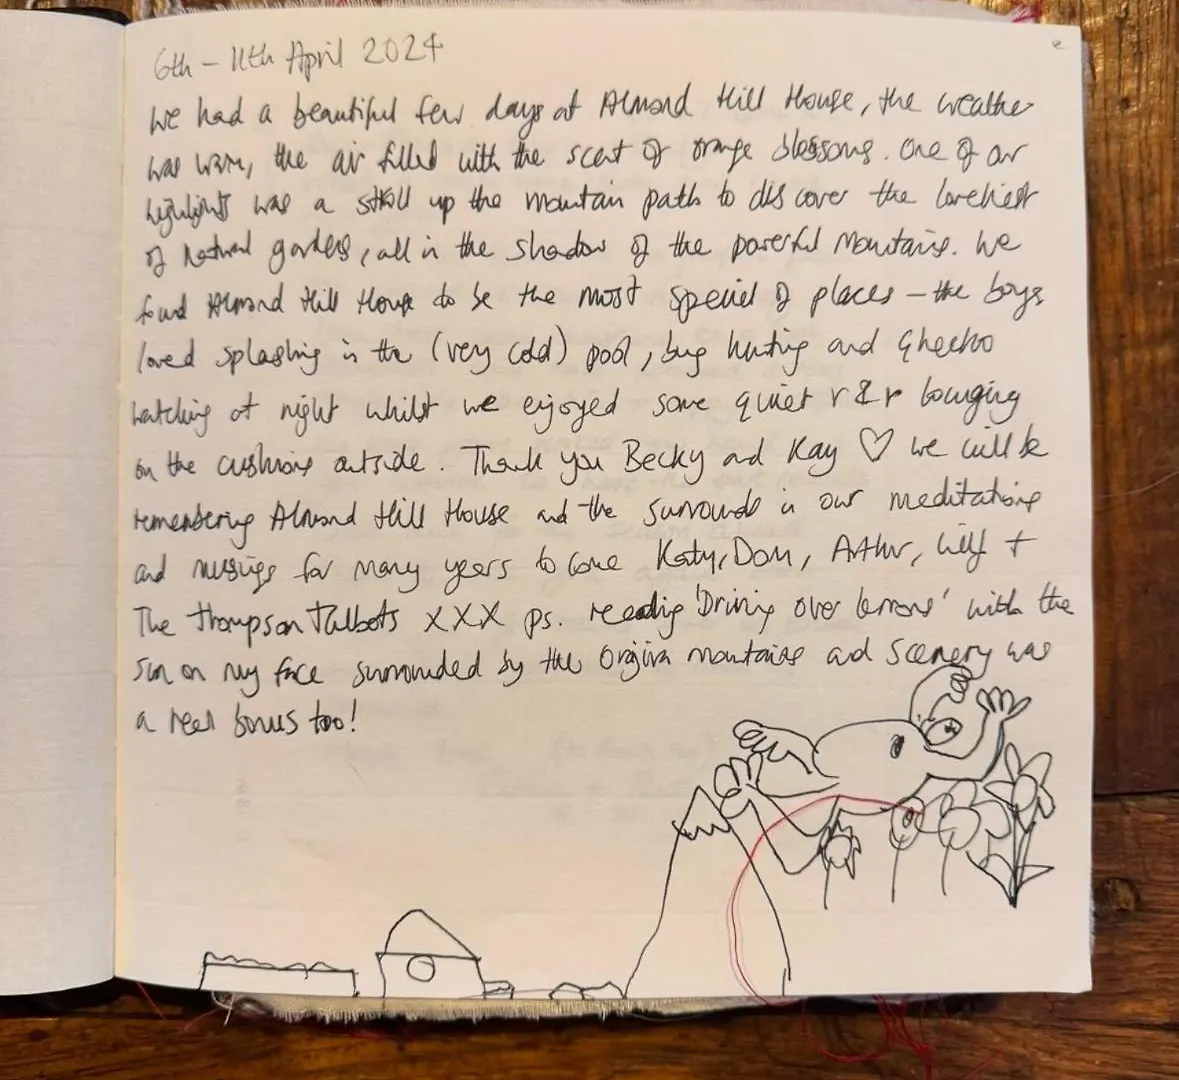 6th - 11th April 2024
We had a beautiful few days at Almond Hill House, the weather
was warm, the air filled with the scent of orange blossoms. One of our
highlights was a stroll up the mountain path to discover the loveliest
of natural gardens, all in the shadow of the powerful mountains. We
found Almond Hill House to be the most special of places - the boys
loved splashing in the (very cold) pool, bug hunting and
watching at night whilst we enjoyed some quiet r & r lounging
on the cushions outside. Thank you Becky and Kay ♡ we will be
remembering Almond Hill House and the surrounds in our meditations
and musings for many years to come Katy, Dom, Arthur, Wilf +
The Thompson Talbots XXX ps. reading 'Driving over lemons' with the
sun on my face surrounded by the Orgiva mountains and scenery was
a real bonus too!